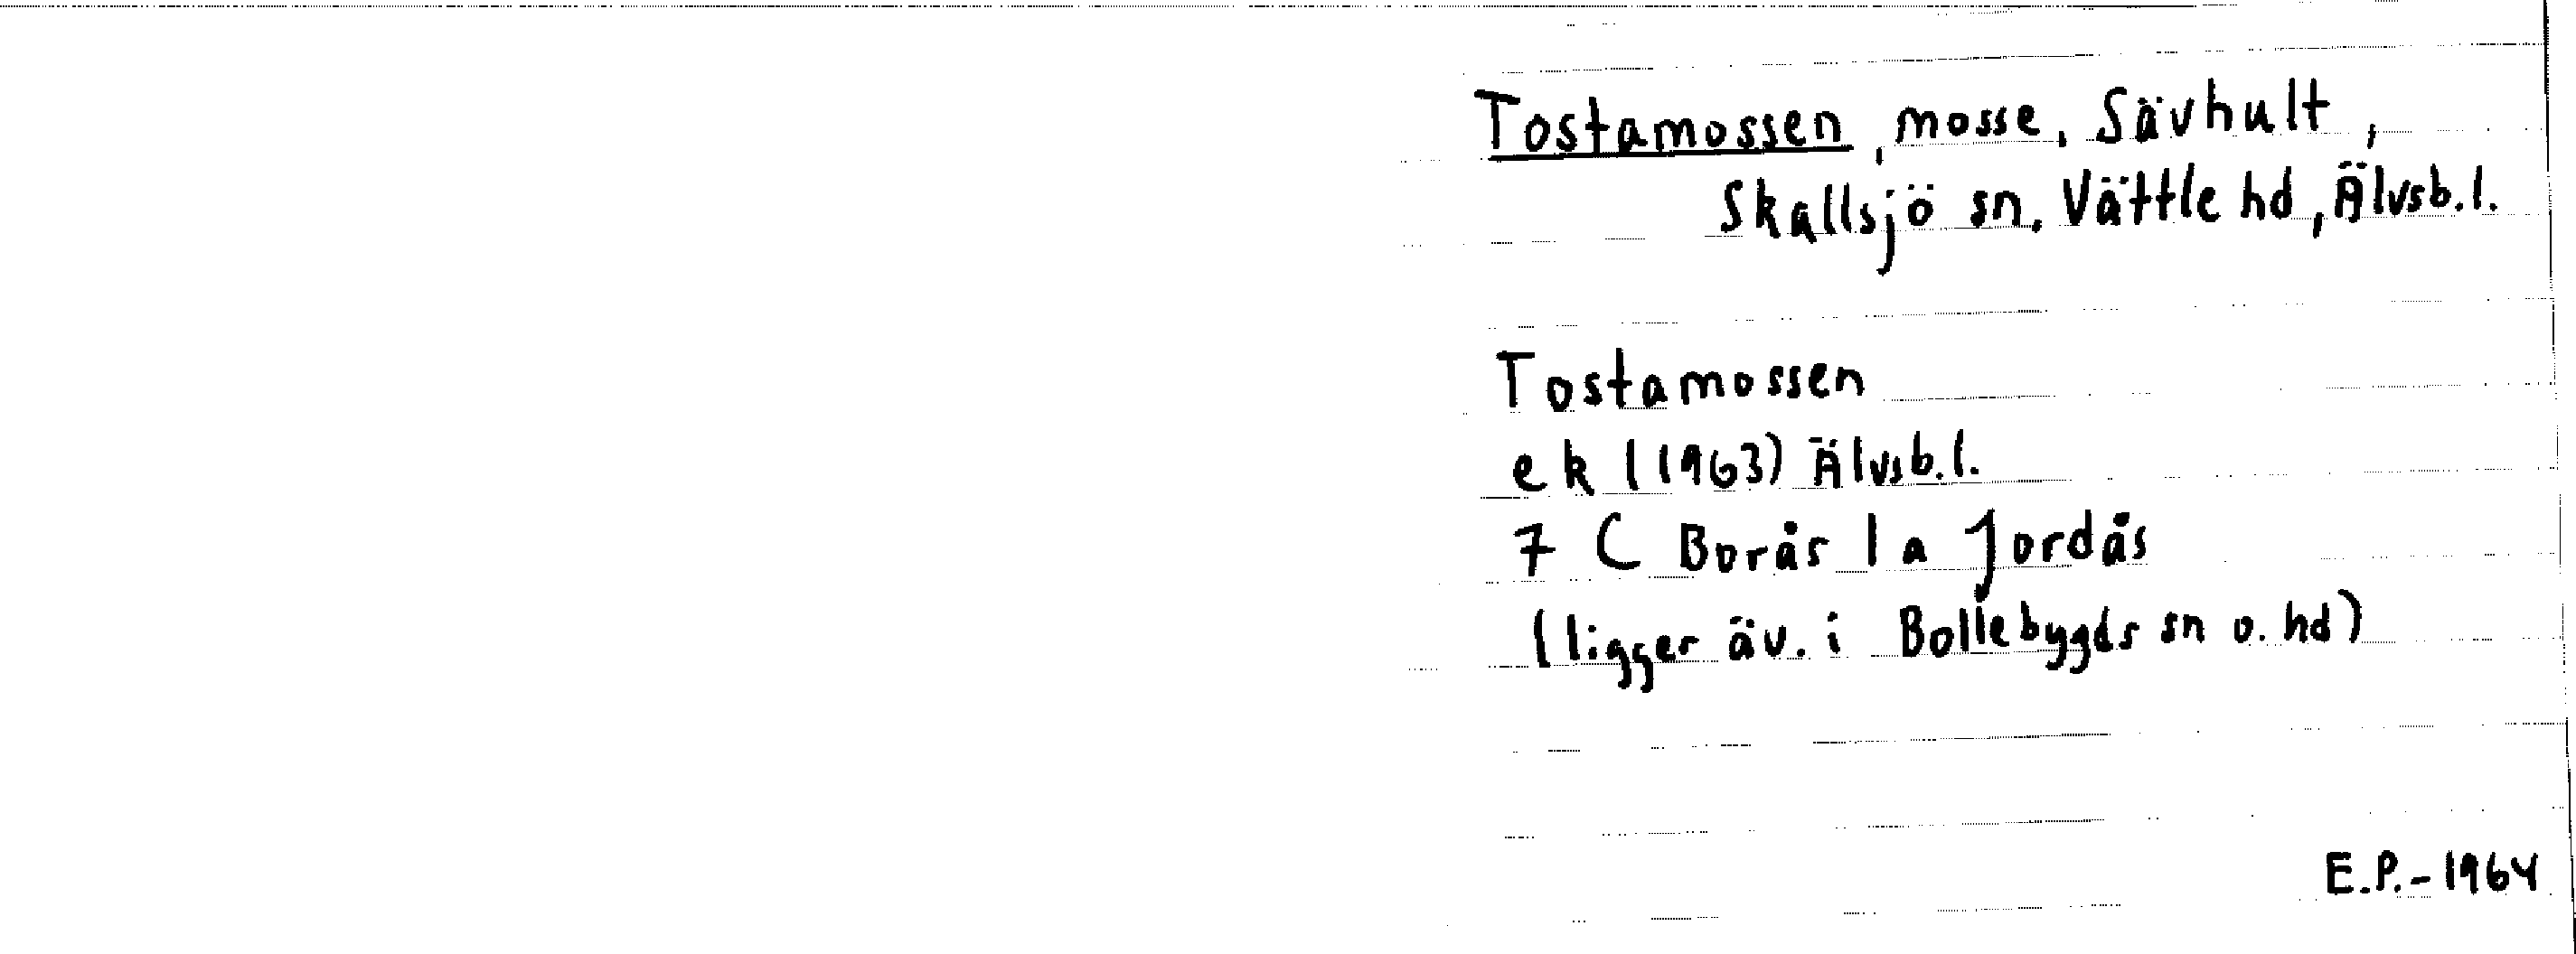 Tostamossen, mosse, Sävhult,
Skallsjö sn, Vättle hd, Älvsb.l.
Tostamossen
ek (1963) Älvsb.l.
7 C Borås 1 a Jordås
(ligger äv. i Bollebygds sn o. hd)
E.P.-1964